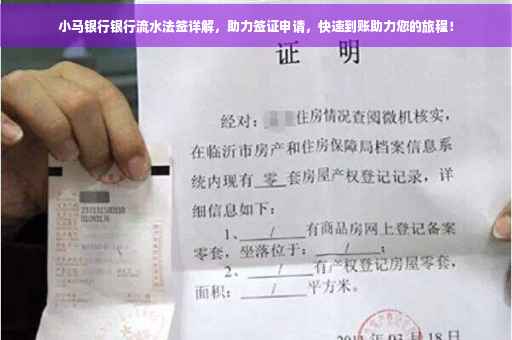 小马银行银行流水法签详解，助力签证申请，快速到账助力您的旅程！
证 明
经对：住房情况查阅微机核实，
在临沂市房产和住房保障局档案信息系
统内现有 零 套房屋产权登记记录，详
细信息如下：
1、 / 有商品房网上登记备案
零套，坐落位于： / ；
2、 / 有产权登记房屋零套，
面积： / 平方米。
03 月 18 日